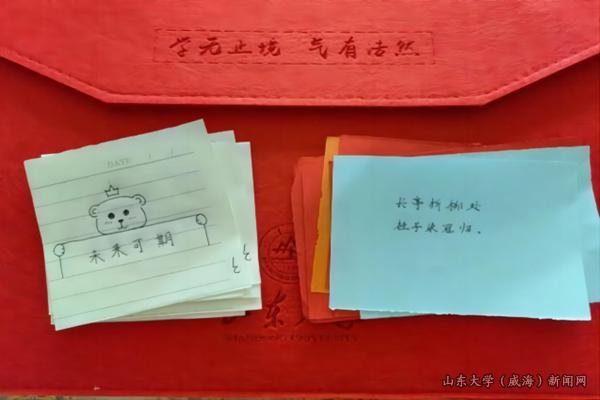 学无止境 气有浩然
DATE
未来可期
长亭折柳处
桂子来冠归。
山东大学
SHANDONG UNIVERSITY
山东大学（威海）新闻网